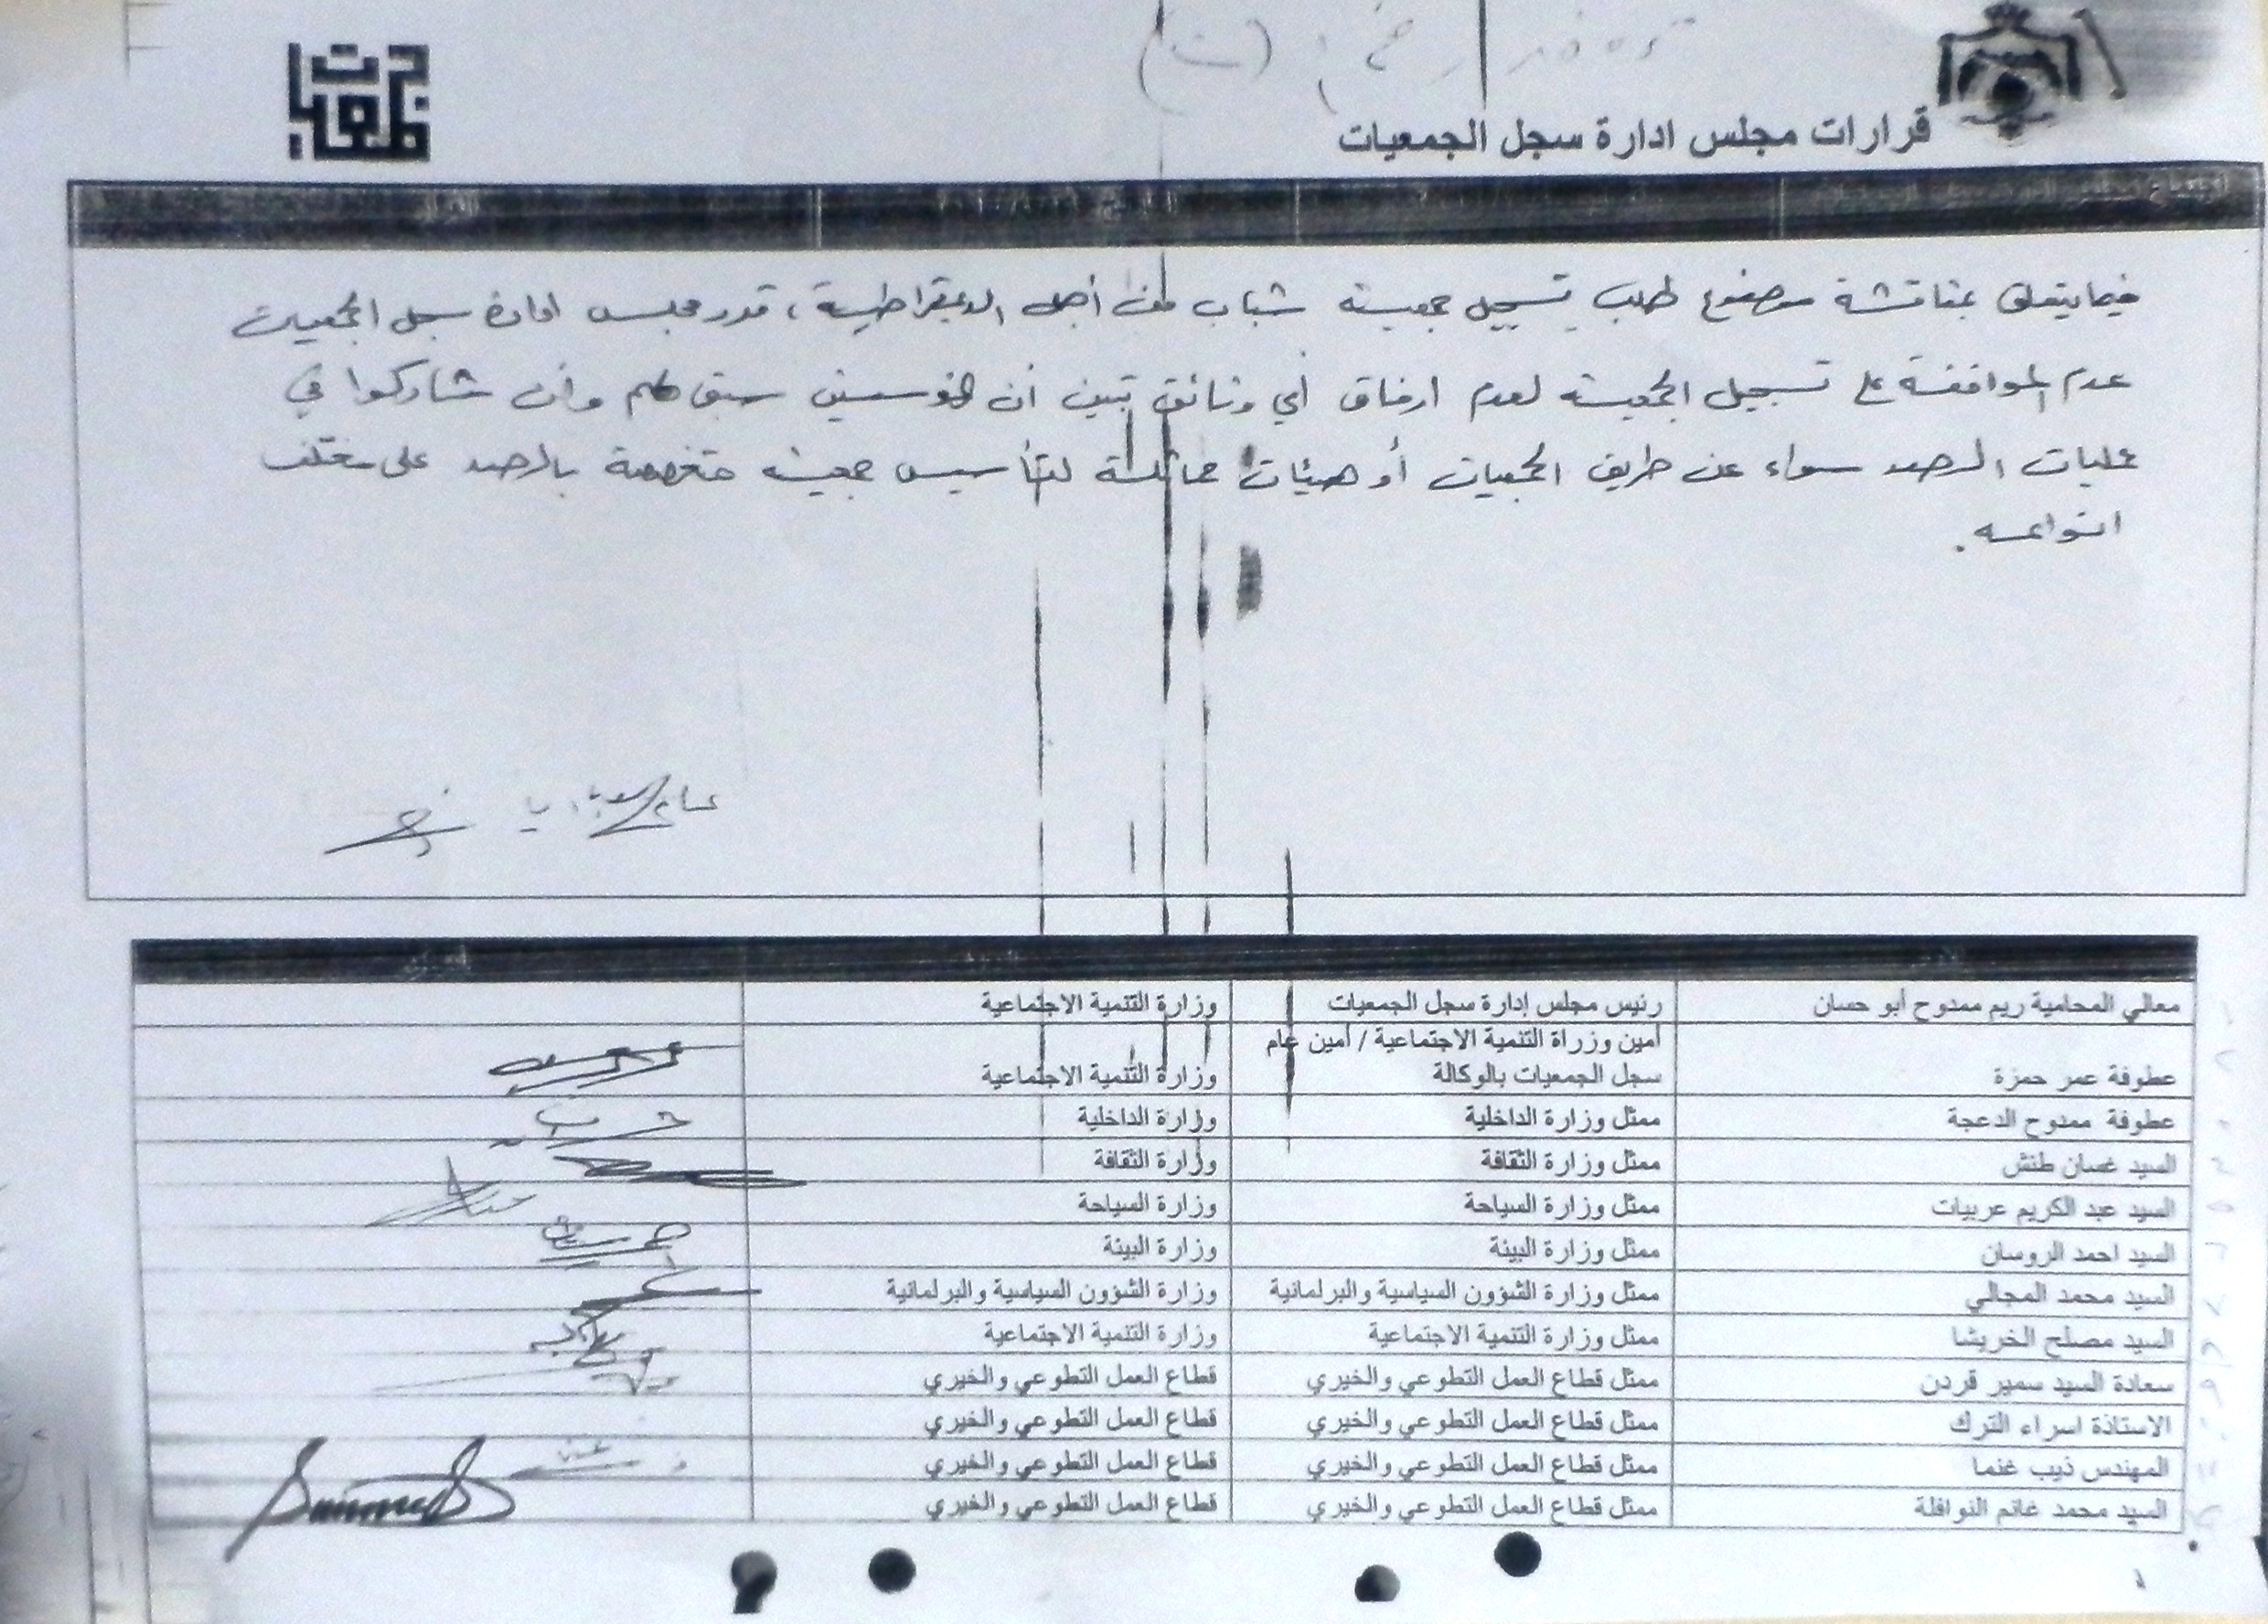 قرارات مجلس ادارة سجل الجمعيات
فيما يتعلق بمناقشة موضوع طلب تسجيل جمعية شباب من أجل الديمقراطية، قرر مجلس ادارة سجل الجمعيات
عدم الموافقة على تسجيل الجمعية لعدم ارفاق أي وثائق تبين أن المؤسسين سبق لهم وأن شاركوا في
عمليات الرصد سواء عن طريق الجمعيات أو هيئات مماثلة لتأسيس جمعية متخصصة بالرصد على مختلف
انواعه.
معالي المحامية ريم ممدوح أبو حسان رئيس مجلس إدارة سجل الجمعيات وزارة التنمية الاجتماعية
أمين وزراة التنمية الاجتماعية / أمين عام
عطوفة عمر حمزة سجل الجمعيات بالوكالة وزارة التنمية الاجتماعية
عطوفة ممدوح الدعجة ممثل وزارة الداخلية وزارة الداخلية
السيد غسان طنش ممثل وزارة الثقافة وزارة الثقافة
السيد عبد الكريم عربيات ممثل وزارة السياحة وزارة السياحة
السيد احمد الروسان ممثل وزارة البيئة وزارة البيئة
السيد محمد المجالي ممثل وزارة الشؤون السياسية والبرلمانية وزارة الشؤون السياسية والبرلمانية
السيد مصلح الخريشا ممثل وزارة التنمية الاجتماعية وزارة التنمية الاجتماعية
سعادة السيد سمير قردن ممثل قطاع العمل التطوعي والخيري قطاع العمل التطوعي والخيري
الاستاذة اسراء الترك ممثل قطاع العمل التطوعي والخيري قطاع العمل التطوعي والخيري
المهندس ذيب غنما ممثل قطاع العمل التطوعي والخيري قطاع العمل التطوعي والخيري
السيد محمد غانم النوافلة ممثل قطاع العمل التطوعي والخيري قطاع العمل التطوعي والخيري